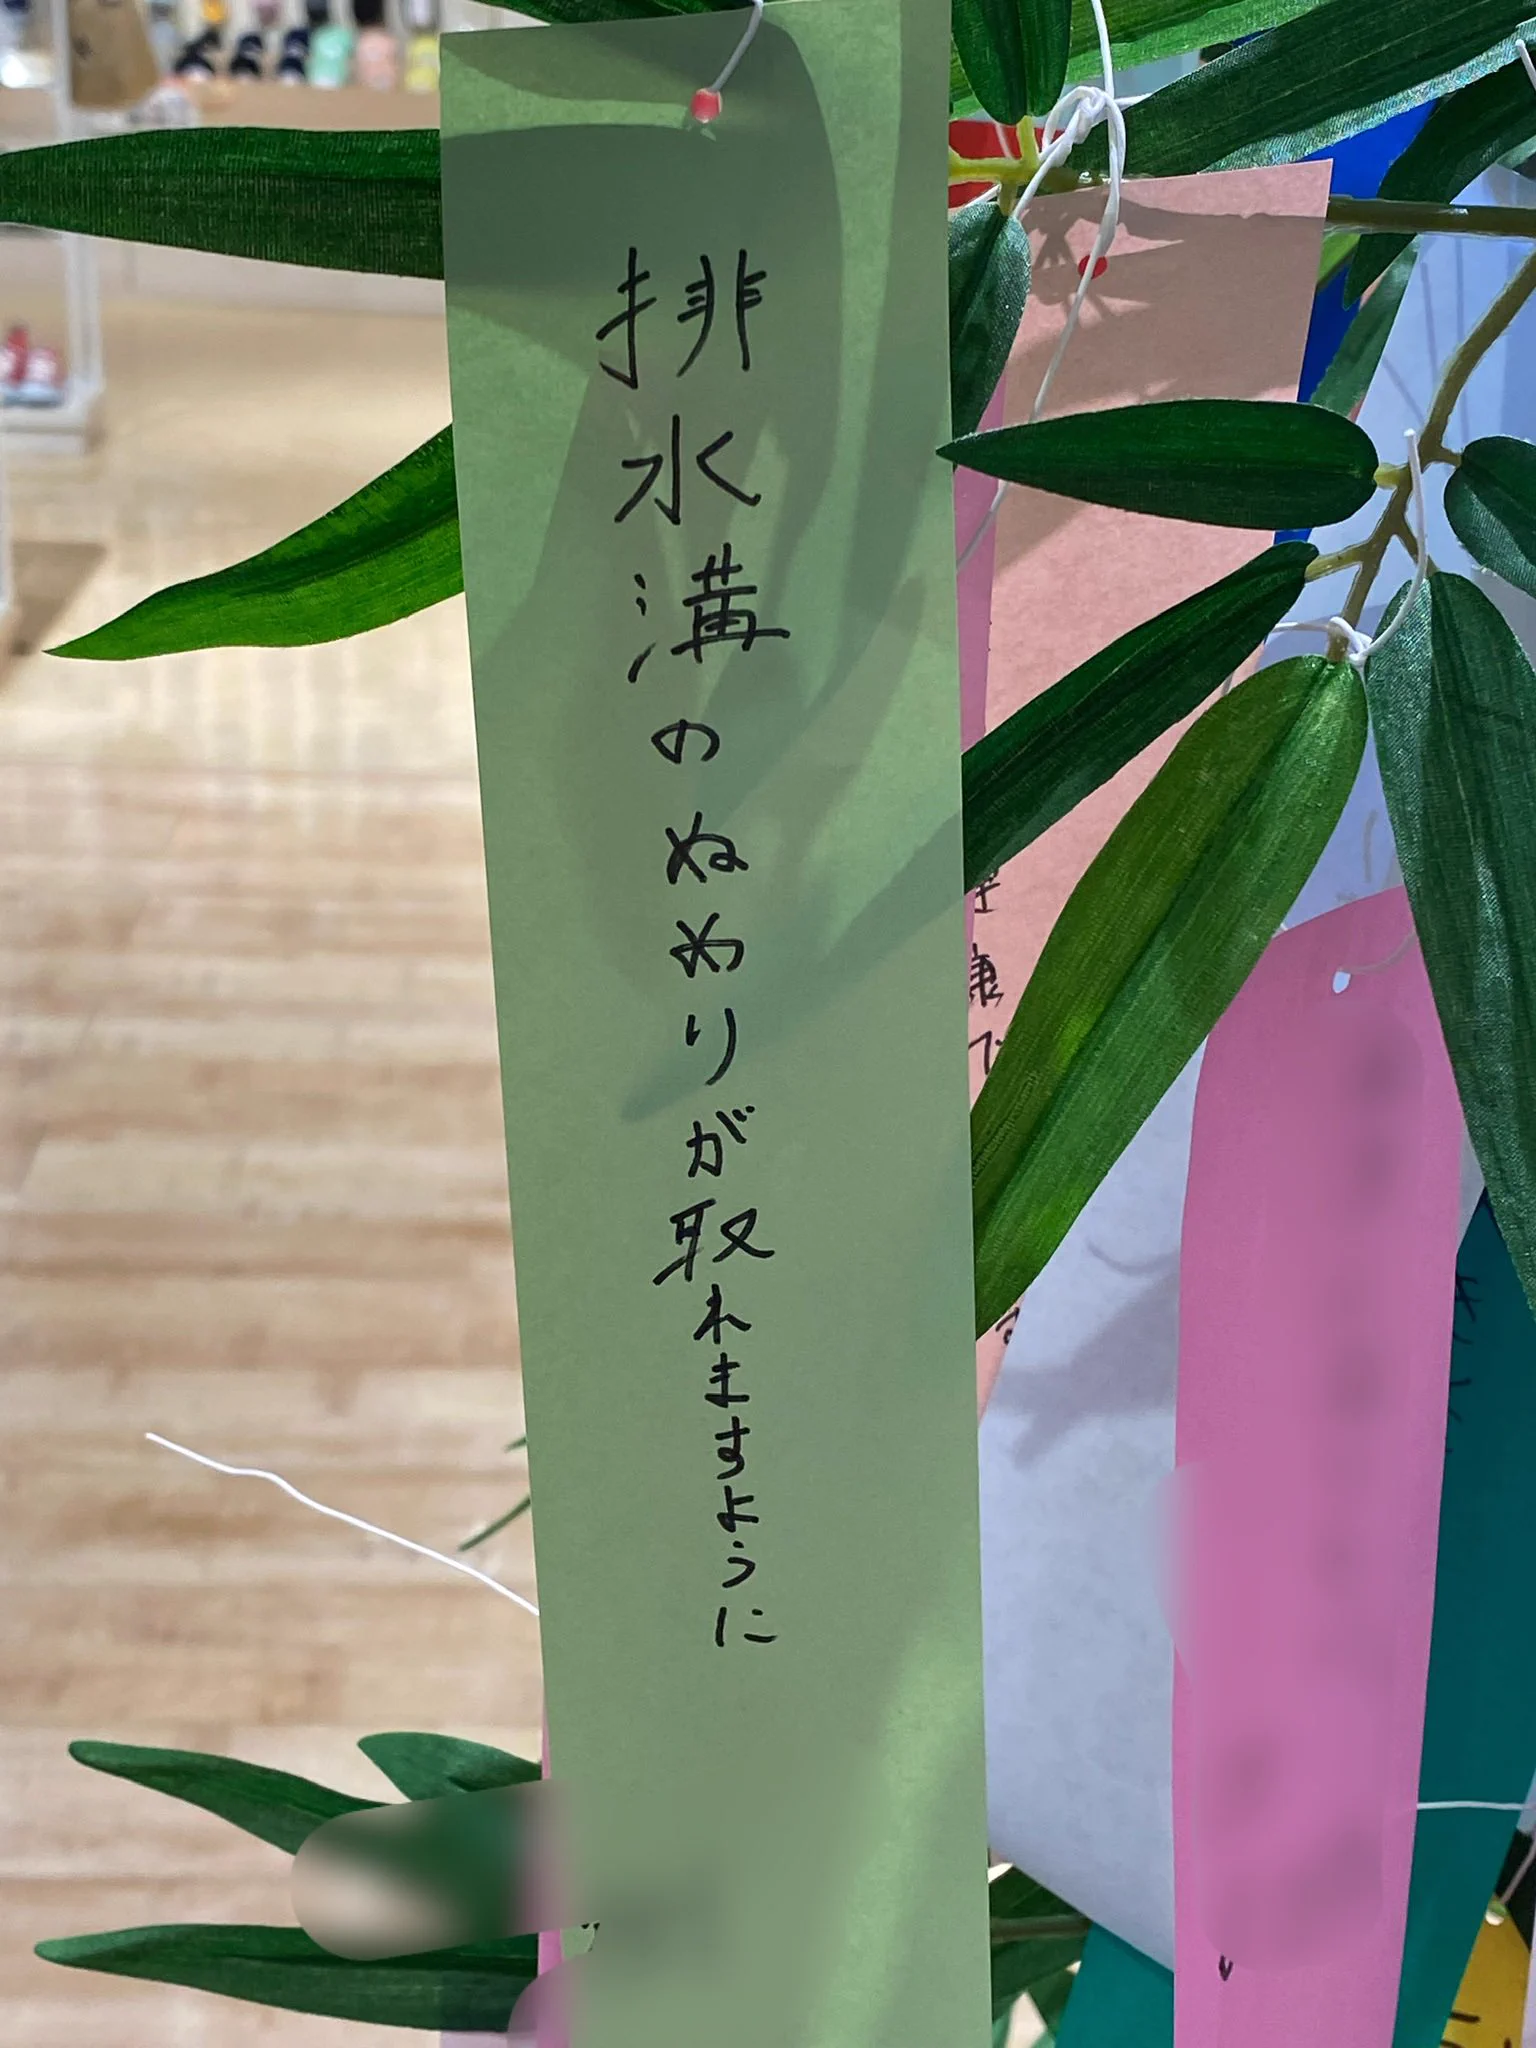 排水溝のぬめりが取れますように